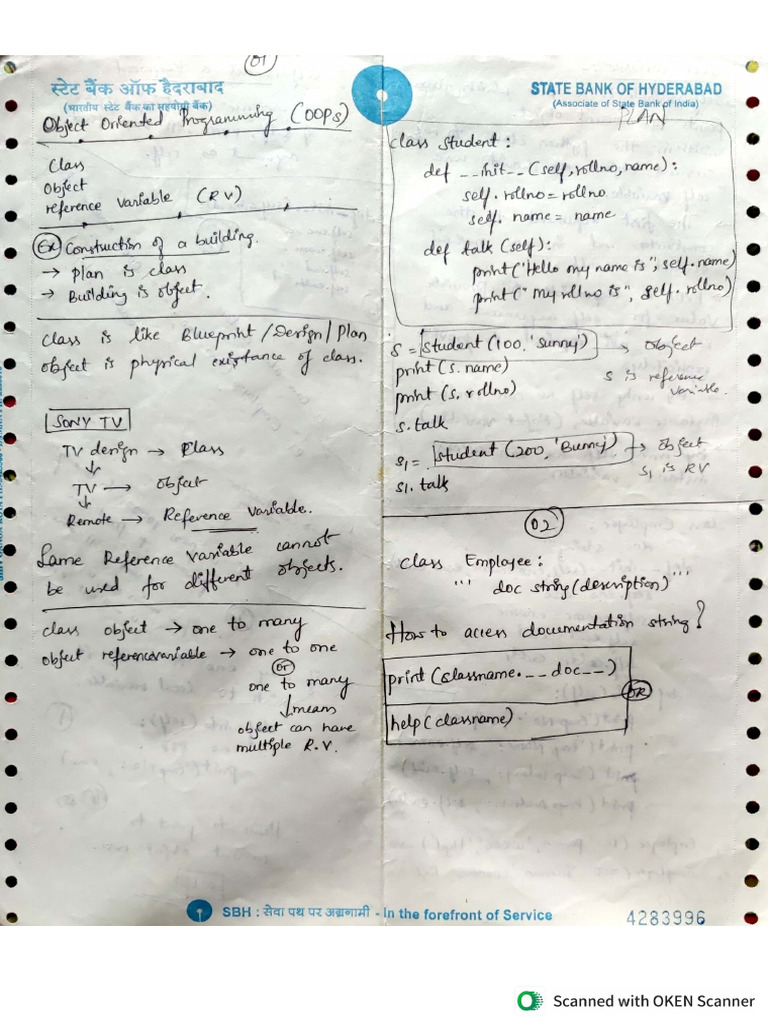 01
स्टेट बैंक ऑफ हैदराबाद
(भारतीय स्टेट बैंक का सहयोगी बैंक)
Object Oriented Programming (OOPs)
Class
Object
reference variable (RV)
Ex Construction of a building.
→ Plan is class
→ Building is object.
class is like Blueprint/Design/Plan
object is physical existance of class.
SONY TV
TV design → Class
TV → Object
Remote → Reference Variable.
Same Reference Variable cannot
be used for different objects.
class object → one to many
object referencevariable → one to one
or
one to many
↓ means
object can have
multiple R.V.
STATE BANK OF HYDERABAD
(Associate of State Bank of India)
PLAN
class Student:
def __init__(self,rollno,name):
self.rollno=rollno
self.name=name
def talk(self):
print("Hello my name is",self.name)
print("My rollno is", self.rollno)
S = Student(100,'Sunny') → Object
print(s.name)
S is reference
variable.
print(s.rollno)
s.talk
S1 = Student(200,'Bunny') → Object
S1 is RV
S1.talk
02
class Employee:
''' doc string(description)'''
How to access documentation string?
print(classname.__doc__)
OR
help(classname)
SBH : सेवा पथ पर अग्रगामी - In the forefront of Service
4283996
Scanned with OKEN Scanner